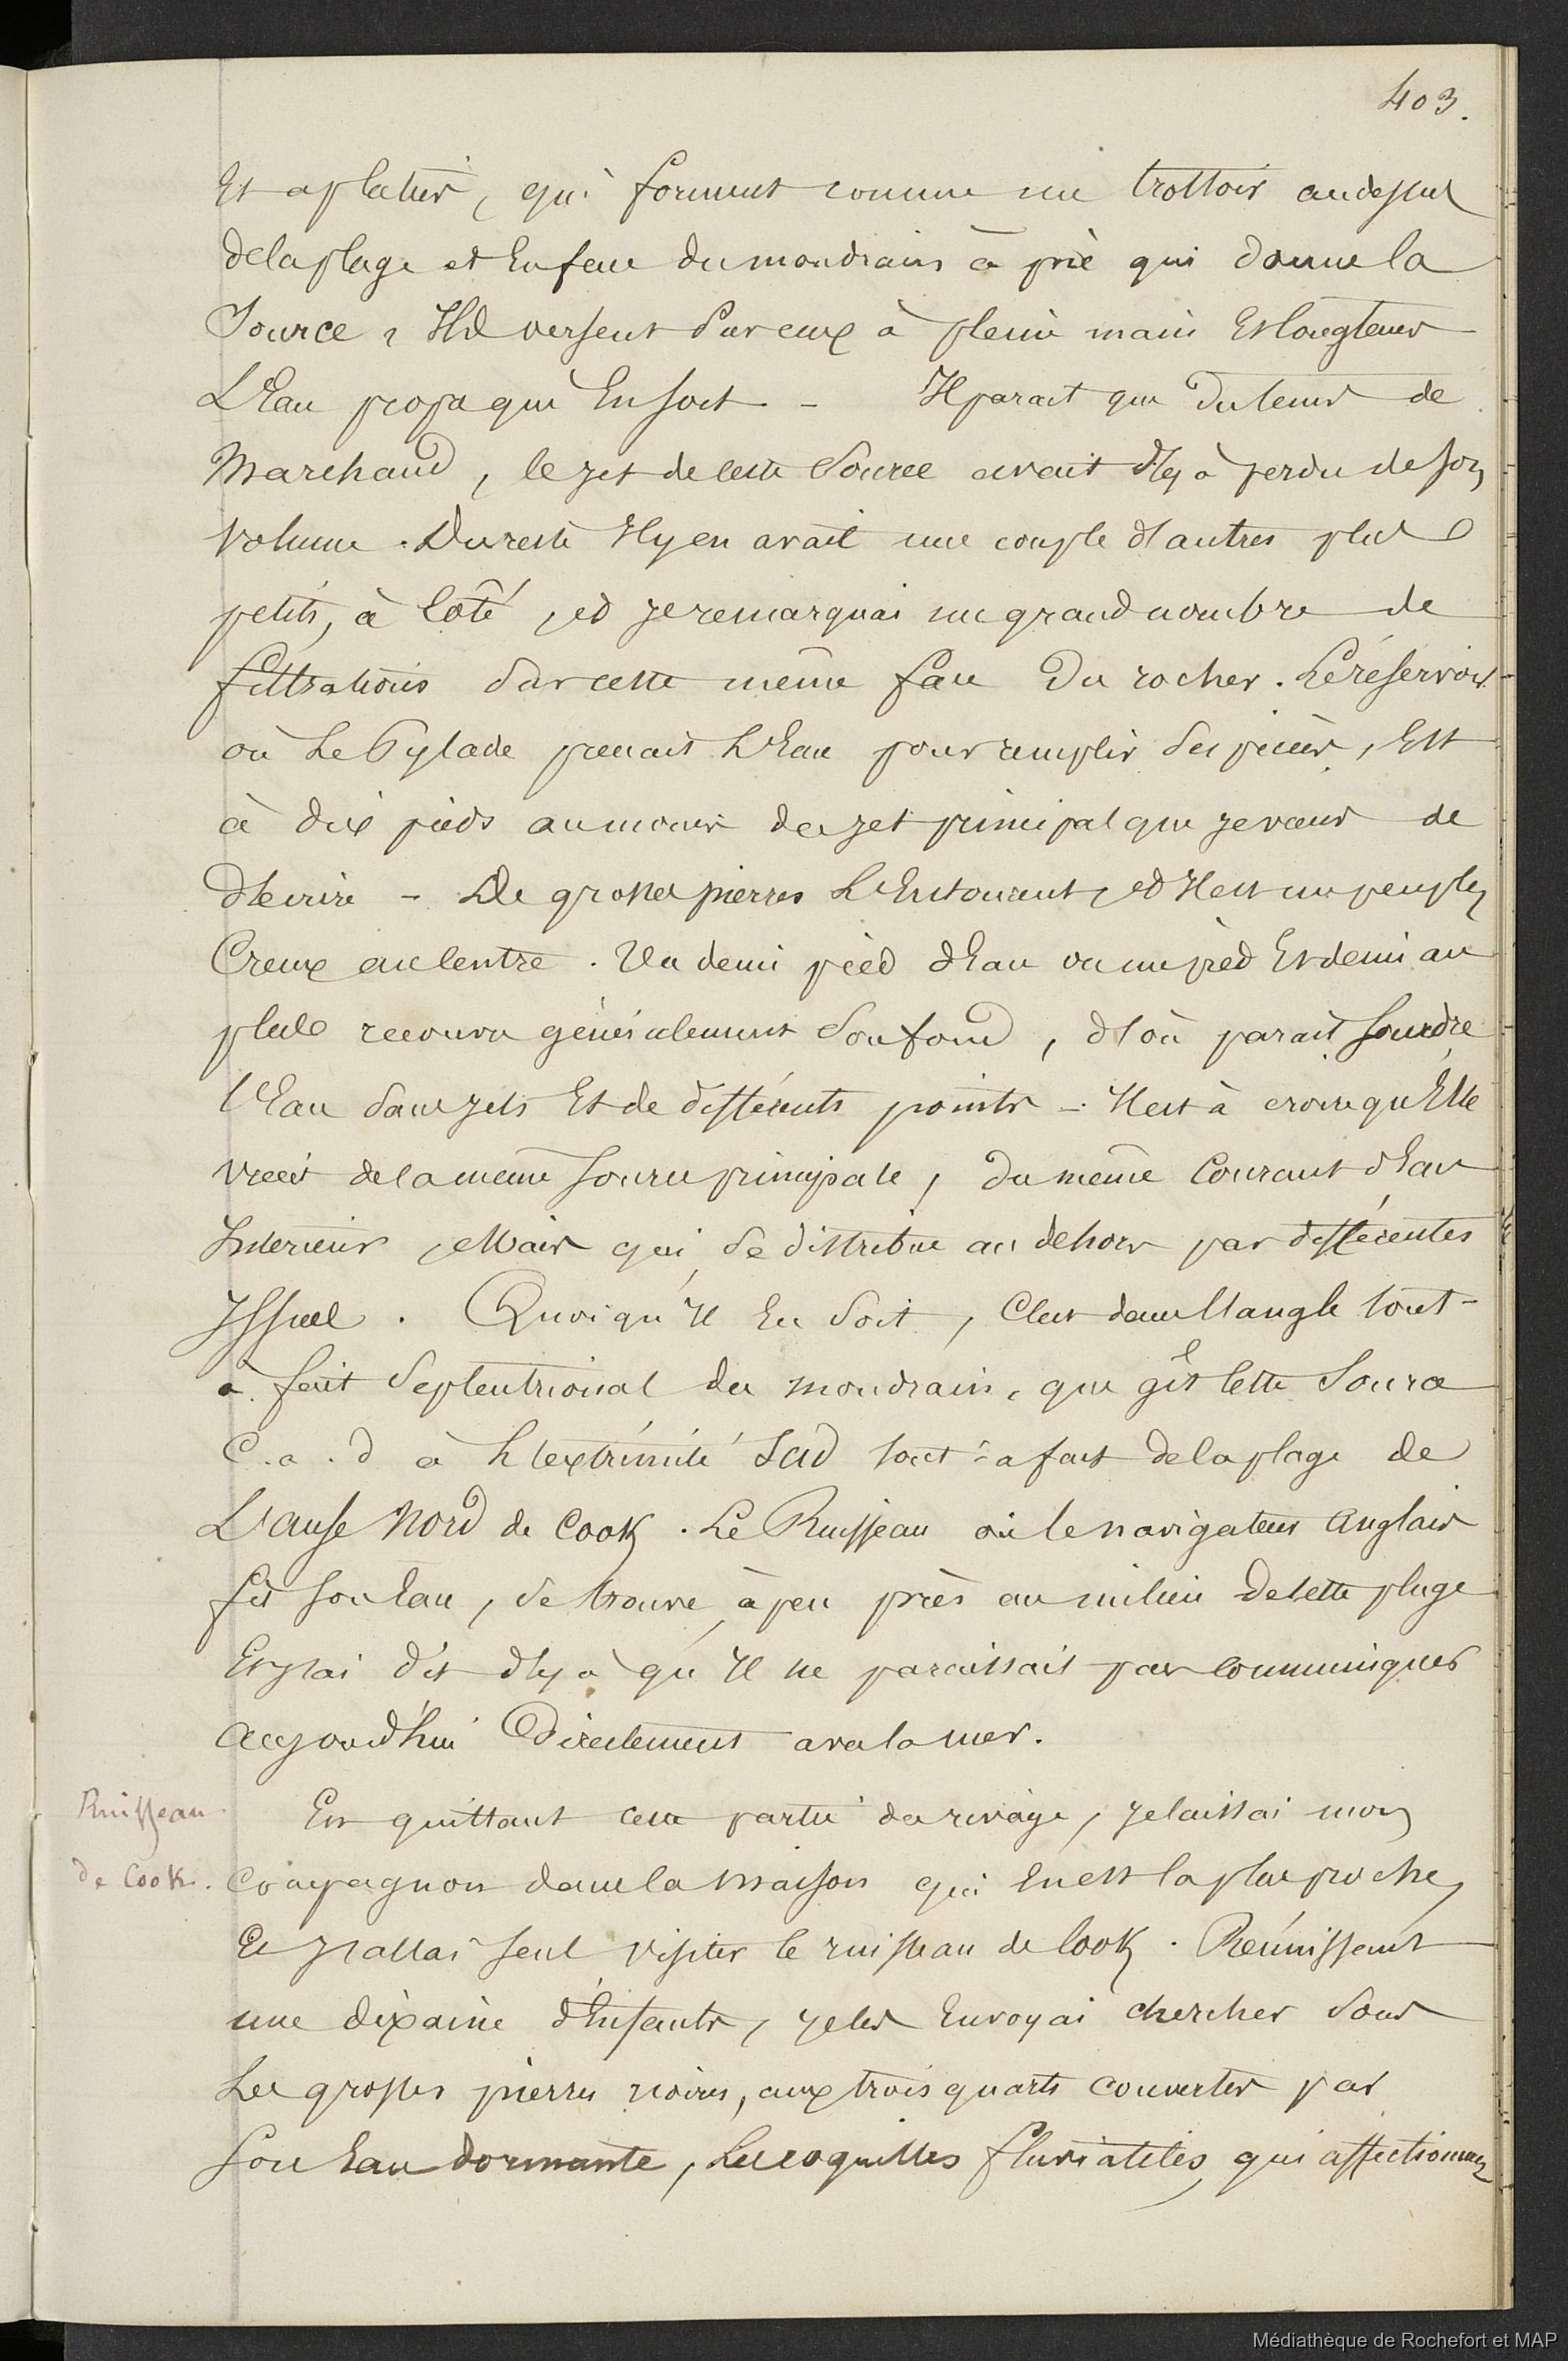 403.
Et aplaties, qui forment comme un trottoir audessus
de la plage et En face du mondrain à pic qui donne la
Source, Ils versent sur eux à pleine main Et longtems
L'Eau propre qui En sort. - Il parait que du tems de
Marchand, le jet de cette Source avait déjà perdu de son
volume. Du reste Il y en avait une couple d'autres plus
petits, à Côté, et je remarquai un grand nombre de
filtrations sur cette même face du rocher. Le réservoir
où Le Pylade prenait L'Eau pour remplir ses pièces, Est
à dix pieds au moins du jet principal que je viens de
décrire - De grosses pierres L'Entourent, et Il est un peu plus
Creux au Centre. Un demi pied d'Eau ou un pied Et demi au
plus recouvre généralement Son fond, d'où parait sourdre
l'Eau sans jets Et de différents points - Il est à croire qu'Elle
vient de la même source principale, du même Courant d'Eau
Intérieur, Mais qui se distribue au dehors par différentes
Issues. Quoiqu'Il En soit, C'est dans l'angle tout-
à fait Septentrional du mondrain, que gît Cette Source
C. a. d à L'extrémité Sud tout-à fait de la plage de
L'anse Nord de Cook. Le Ruisseau où le navigateur Anglais
fit son Eau, se trouve à peu près au milieu de Cette plage
Et j'ai dit déjà qu'Il ne paraissait pas communiquer
Aujourd'hui Directement avec la mer.
Ruisseau
de Cook.
En quittant cette partie du rivage, je laissai mon
Compagnon dans la maison qui En est la plus proche,
Et j'allai seul visiter le ruisseau de Cook. Réunissant
une dixaine d'Enfants, je les Envoyai chercher sous
Les grosses pierres noires, aux trois quarts couvertes par
son Eau dormante, Les coquilles fluviatiles, qui affectionnent